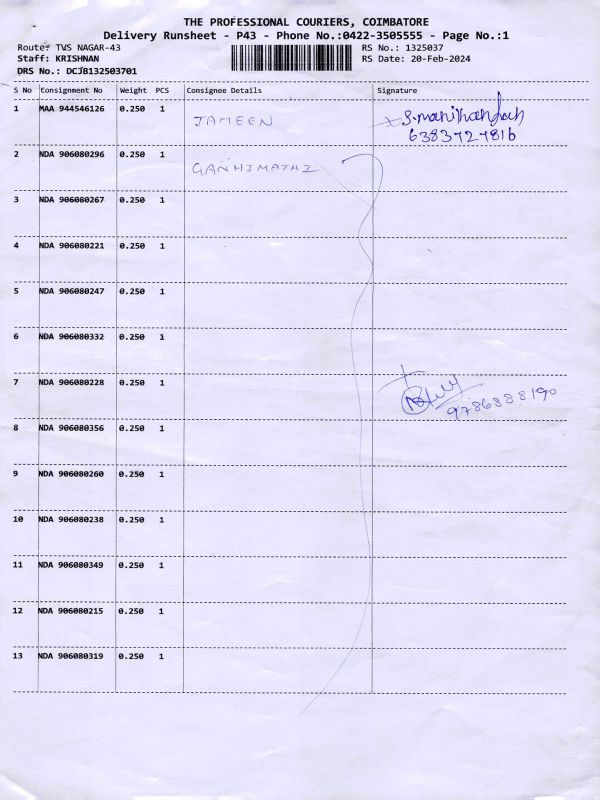 THE PROFESSIONAL COURIERS, COIMBATORE
Delivery Runsheet - P43 - Phone No.:0422-3505555 - Page No.:1
Route: TVS NAGAR-43 RS No.: 1325037
Staff: KRISHNAN RS Date: 20-Feb-2024
DRS No.: DCJB132503701
S No Consignment No Weight PCS Consignee Details Signature
1 MAA 944546126 0.250 1 JAMEEN S.manikandan
6383727816
2 NDA 906080296 0.250 1 GANHIMATHI
3 NDA 906080267 0.250 1
4 NDA 906080221 0.250 1
5 NDA 906080247 0.250 1
6 NDA 906080332 0.250 1
7 NDA 906080228 0.250 1 9786888190
8 NDA 906080356 0.250 1
9 NDA 906080260 0.250 1
10 NDA 906080238 0.250 1
11 NDA 906080349 0.250 1
12 NDA 906080215 0.250 1
13 NDA 906080319 0.250 1